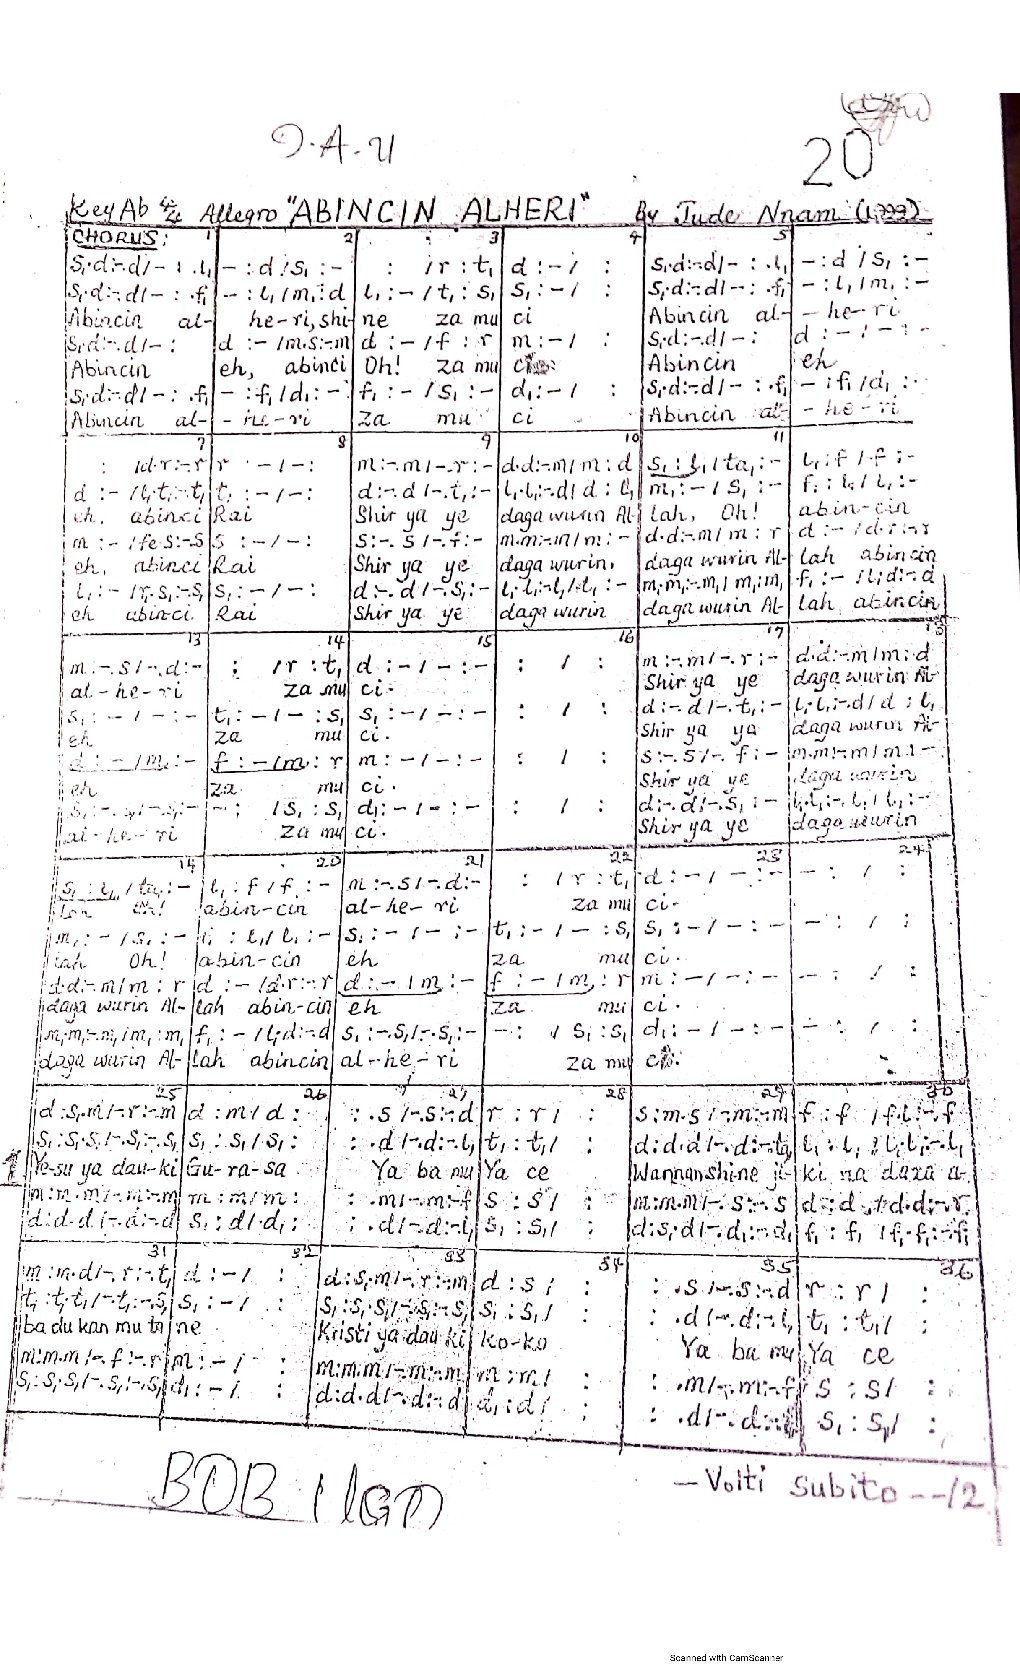 D.A.U
20
Key Ab 4/4 Allegro "ABINCIN ALHERI" By Jude Nnam (1,999)
CHORUS: 1 2 3 4 5
s₁.d:-.d/- : .l₁ | - : d /s₁ :- | : /r : t₁ | d :- / : | s₁.d:-.d/- : .l₁ | - : d /s₁ :-
s₁.d:-.d/- : .f₁ | - : l₁ /m₁:d | l₁ :- /t₁ : s₁ | s₁ :- / : | s₁.d:-.d/- : .f₁ | - : l₁ /m₁ :-
Abincin al- | he-ri, shi- | ne za mu | ci | Abincin al- | - he-ri
s₁.d:-.d/- : | d :- /m.s:-.m | d :- /f : r | m :- / : | s₁.d:-.d/- : | d :- / - : -
Abincin | eh, abinci | Oh! za mu | ci | Abincin | eh
s₁.d:-.d/- : .f₁ | - : f₁ /d₁ :- | f₁ :- /s₁ :- | d₁ :- / : | s₁.d:-.d/- : .f₁ | - : f₁ /d₁ :-
Abincin al- | - he-ri | za mu | ci | Abincin al- | - he-ri
7 8 9 10 11
: /d.r:-.r | r :- / - : | m:-.m/-.r:- | d.d:-.m/m:d | s₁ : l₁/ta₁:- | l₁:f /f :-
d :- /l₁.t₁:-.t₁ | t₁ :- / - : | d:-.d/-.t₁:- | l₁.l₁:-.d/d : l₁ | m₁ :- /s₁ :- | f₁ : l₁ / l₁ :-
eh, abinci | Rai | Shir ya ye | daga wurin Al- | lah, Oh! | abin-cin
m :- /fe.s:-.s | s :- / - : | s:-.s/-.f:- | m.m:-.m/m :- | d.d:-.m/m : r | d :- /d.r:-.r
eh, abinci | Rai | Shir ya ye | daga wurin, | daga wurin Al- | lah abincin
l₁ :- /r.s₁:-.s₁ | s₁ :- / - : | d:-.d/-.s₁:- | l₁.l₁:-.l₁/l₁ :- | m₁.m₁:-.m₁/m₁:m₁ | f₁ :- /l₁.d:-.d
eh abinci | Rai | Shir ya ye | daga wurin | daga wurin Al- | lah, abincin
13 14 15 16 17 18
m:-.s/-.d:- | : /r : t₁ | d :- / - :- | : / : | m:-.m/-.r:- | d.d:-.m/m:d
al-he-ri | za mu | ci. | Shir ya ye | daga wurin Al-
s₁ :- / - :- | t₁ :- / - : s₁ | s₁ :- / - :- | : / : | d:-.d/-.t₁:- | l₁.l₁:-.d/d : l₁
eh | za mu | ci. | Shir ya ya | daga wurin Al-
d :- /m :- | f :- /m : r | m :- / - :- | : / : | s:-.s/-.f:- | m.m:-.m/m :-
eh | za mu | ci. | Shir ya ye | daga wurin
s₁:-.s₁/-.s₁:- | - : /s₁ : s₁ | d₁ :- / - :- | : / : | d:-.d/-.s₁:- | l₁.l₁:-.l₁/l₁ :-
al-he-ri | za mu | ci. | Shir ya ye | daga wurin
19 20 21 22 23 24
s₁ : l₁ /ta₁ :- | l₁ : f /f :- | m:-.s/-.d:- | : /r : t₁ | d :- / - :- | - : / :
lah Oh! | abin-cin | al-he-ri | za mu | ci.
m₁ :- /s₁ :- | f₁ : l₁/ l₁ :- | s₁ :- / - :- | t₁ :- / - : s₁ | s₁ :- / - :- | - : / :
lah Oh! | abin-cin | eh | za mu | ci.
d.d:-.m/m : r | d :- /d.r:-.r | d :- /m :- | f :- /m : r | m :- / - :- | - : / :
daga wurin Al- | lah abin-cin | eh | za mu | ci.
m₁.m₁:-.m₁/m₁:m₁ | f₁ :- /l₁.d:-.d | s₁:-.s₁/-.s₁:- | - : /s₁ : s₁ | d₁ :- / - :- | - : / :
daga wurin Al- | lah abincin | al-he-ri | za mu | ci.
25 26 27 28 29 30
d:s₁.m/-.r:-.m | d : m/ d : | : .s/-.s:-.d | r : r / : | s:m.s/-.m:-.m | f : f /f.l:-.f
s₁:s₁.s₁/-.s₁:-.s₁ | s₁ : s₁ /s₁ : | : .d/-.d:-.l₁ | t₁ : t₁/ : | d:d.d/-.d:-.ta₁ | l₁ : l₁ /l₁.l₁:-.l₁
1 Ye-su ya dau-ki | Gu-ra-sa | Ya ba mu | Ya ce | Wannan shine ji- | ki na daza a-
m:m.m/-.m:-.m | m : m/m : | : .m/-.m:-.f | s : s/ : | m:m.m/-.s:-.s | d : d /d.d:-.r
d:d.d/-.d:-.d | s₁ : d/d₁ : | : .d/-.d:-.l₁ | s₁ : s₁/ : | d:s₁.d/-.d₁:-.d₁ | f₁ : f₁ /f₁.f₁:-.f₁
31 32 33 34 35 36
m:m.d/-.r:-.t₁ | d :- / : | d:s₁.m/-.r:-.m | d : s / : | : .s/-.s:-.d | r : r / :
t₁:t₁.t₁/-.t₁:-.s₁ | s₁ :- / : | s₁:s₁.s₁/-.s₁:-.s₁ | s₁ : s₁/ : | : .d/-.d:-.l₁ | t₁ : t₁/ :
ba du kan mu ta | ne | Kristi ya dau ki | ko-ko | Ya ba mu | Ya ce
m:m.m/-.f:-.r | m :- / : | m:m.m/-.m:-.m | m : m/ : | : .m/-.m:-.f | s : s/ :
s₁:s₁.s₁/-.s₁:-.s₁ | d₁ :- / : | d:d.d/-.d:-.d | d₁ : d/ : | : .d/-.d:-.l₁ | s₁ : s₁/ :
— Volti Subito --/2
BOB
Scanned with CamScanner